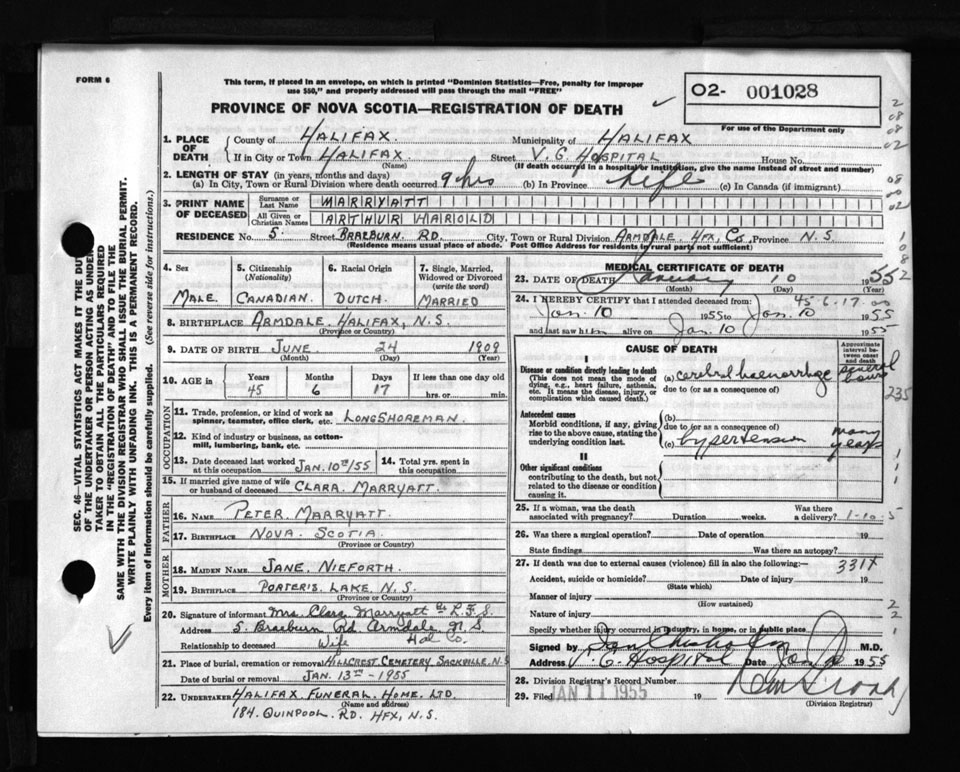 FORM 6
This form, if placed in an envelope, on which is printed "Dominion Statistics—Free, penalty for improper
use $50," and properly addressed will pass through the mail "FREE"
PROVINCE OF NOVA SCOTIA—REGISTRATION OF DEATH
O2- 001028
For use of the Department only
1. PLACE OF DEATH
County of HALIFAX. Municipality of HALIFAX
If in City or Town HALIFAX. Street V. G. HOSPITAL House No.
(Name) (If death occurred in a hospital or institution, give its name instead of street and number)
2. LENGTH OF STAY (in years, months and days)
(a) In City, Town or Rural Division where death occurred 9 hrs (b) In Province life (c) In Canada (if immigrant)
3. PRINT NAME OF DECEASED
Surname or Last Name MARRYATT
All Given or Christian Names ARTHUR HAROLD
RESIDENCE No. 5. Street BRAEBURN. RD. City, Town or Rural Division ARMDALE. HFX, Co, Province N.S.
(Residence means usual place of abode. Post Office Address for residents in rural parts not sufficient)
4. Sex
MALE.
5. Citizenship
(Nationality)
CANADIAN.
6. Racial Origin
DUTCH.
7. Single, Married,
Widowed or Divorced
(write the word)
MARRIED
8. BIRTHPLACE ARMDALE. HALIFAX, N.S.
(Province or Country)
9. DATE OF BIRTH JUNE 24 1909
(Month) (Day) (Year)
10. AGE IN
Years Months Days If less than one day old
45 6 17 hrs. or min.
OCCUPATION
11. Trade, profession, or kind of work as
spinner, teamster, office clerk, etc. LONGSHOREMAN.
12. Kind of industry or business, as cotton-
mill, lumbering, bank, etc.
13. Date deceased last worked
at this occupation JAN. 10TH/55
14. Total yrs. spent in
this occupation
15. If married give name of wife
or husband of deceased CLARA. MARRYATT.
FATHER
16. NAME PETER. MARRYATT
17. BIRTHPLACE NOVA. SCOTIA.
(Province or Country)
MOTHER
18. MAIDEN NAME JANE. NIEFORTH.
19. BIRTHPLACE PORTER'S LAKE. N.S.
(Province or Country)
20. Signature of informant Mrs. Clara Marryatt L.F.S.
Address 5. Braeburn Rd. Armdale, N.S.
Relationship to deceased Wife Hal Co.
21. Place of burial, cremation or removal HILLCREST. CEMETERY. SACKVILLE. N.S
Date of burial or removal JAN. 13TH - 1955
22. UNDERTAKER HALIFAX. FUNERAL. HOME. LTD.
(Name and address)
184. QUINPOOL. RD. HFX, N.S.
MEDICAL CERTIFICATE OF DEATH
23. DATE OF DEATH January 10 1955
(Month) (Day) (Year)
45-6-17
24. I HEREBY CERTIFY that I attended deceased from:
Jan. 10 1955 to Jan. 10 1955
and last saw him alive on Jan. 10 1955
CAUSE OF DEATH
Approximate interval between onset and death
I
Disease or condition directly leading to death
(This does not mean the mode of
dying, e.g., heart failure, asthenia,
etc. It means the disease, injury, or
complication which caused death.)
(a) cerebral haemorrhage several hours
due to (or as a consequence of)
235
Antecedent causes
Morbid conditions, if any, giving
rise to the above cause, stating the
underlying condition last.
(b)
due to (or as a consequence of)
(c) hypertension many years
II
Other significant conditions
contributing to the death, but not
related to the disease or condition
causing it.
25. If a woman, was the death
associated with pregnancy? Duration weeks. Was there
a delivery? 1-10-5
26. Was there a surgical operation? Date of operation 19
State findings Was there an autopsy?
27. If death was due to external causes (violence) fill in also the following:— 331X
Accident, suicide or homicide? Date of injury 19
(State which)
Manner of injury
(How sustained)
Nature of injury
Specify whether injury occurred in industry, in home, or in public place
Signed by M.D.
Address V. G. Hospital Date Jan 1955
28. Division Registrar's Record Number
29. Filed JAN 11 1955 19
(Division Registrar)
SEC. 46—VITAL STATISTICS ACT MAKES IT THE DUTY
OF THE UNDERTAKER OR PERSON ACTING AS UNDER-
TAKER TO OBTAIN ALL THE PARTICULARS REQUIRED
IN THE "REGISTRATION OF DEATH" AND TO FILE THE
SAME WITH THE DIVISION REGISTRAR WHO SHALL ISSUE THE BURIAL PERMIT.
WRITE PLAINLY WITH UNFADING INK. THIS IS A PERMANENT RECORD.
Every item of information should be carefully supplied. (See reverse side for instructions.)